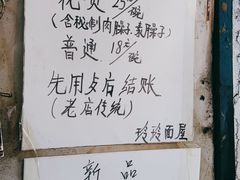 25元/碗
(含秘制肉臊子,素臊子)
普通 18元/碗
先用后结账
(老店传统)
玲玲面屋
新品